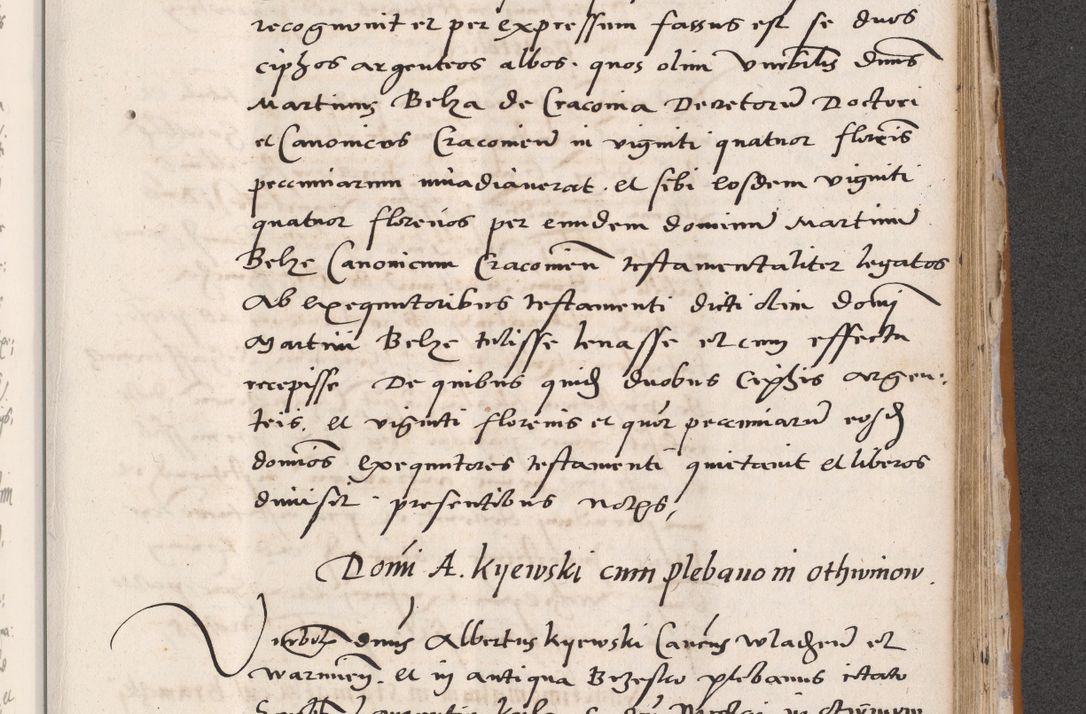 recognovit et per expressum fassus est se duos
ciphos argenteos albos. quos olim Venerabilis dnus
Martinus Belza de Cracovia Decretorū Doctori
et Canonicos Cracovienē in viginti quatuor florenis
peccuniarum invadiaverat. et sibi eosdem viginti
quatuor florenos per eundem dominū Martinū
Belze Canonicum Cracovienē testamentaliter legatos
Ab exequutoribus testamenti dicti olim domi
Martini Belze tulisse levasse et cum effectu
recepisse De quibus quid duobus Ciphis argen-
teis. et viginti florenis et quor peccuniarū eosd
dominos exequutores testamenti quietavit et liberos
dimisit. presentibus notis
Domi A. kijewski cum plebano in othwinow.
Venerbilis dnus Albertus kijewski Canēus wladien et
warmien. et in antiqua Brzesko plebanus citato